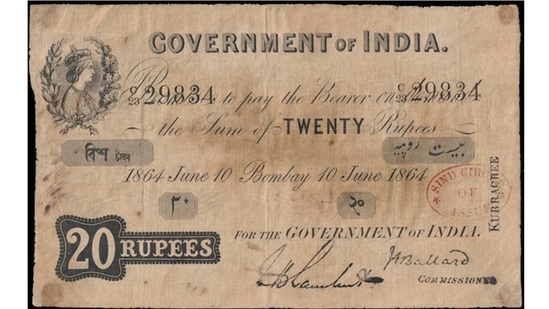 GOVERNMENT OF INDIA.
29834 29834
to pay the Bearer on
the Sum of TWENTY Rupees
بیست روپیہ
1864 June 10 Bombay 10 June 1864
٢٠ २०
20 RUPEES
FOR THE GOVERNMENT OF INDIA.
J A Ballard
COMMISSIONER
SIND CIRCLE
OF
ISSUE
KURRACHEE